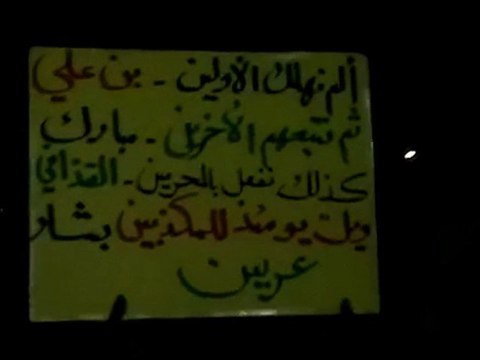 ألم نهلك الأولين - بن علي
ثم نتبعهم الأخرين - مبارك
كذلك نفعل بالمجرمين - القذافي
ويل يومئذ للمكذبين بشار
عربين